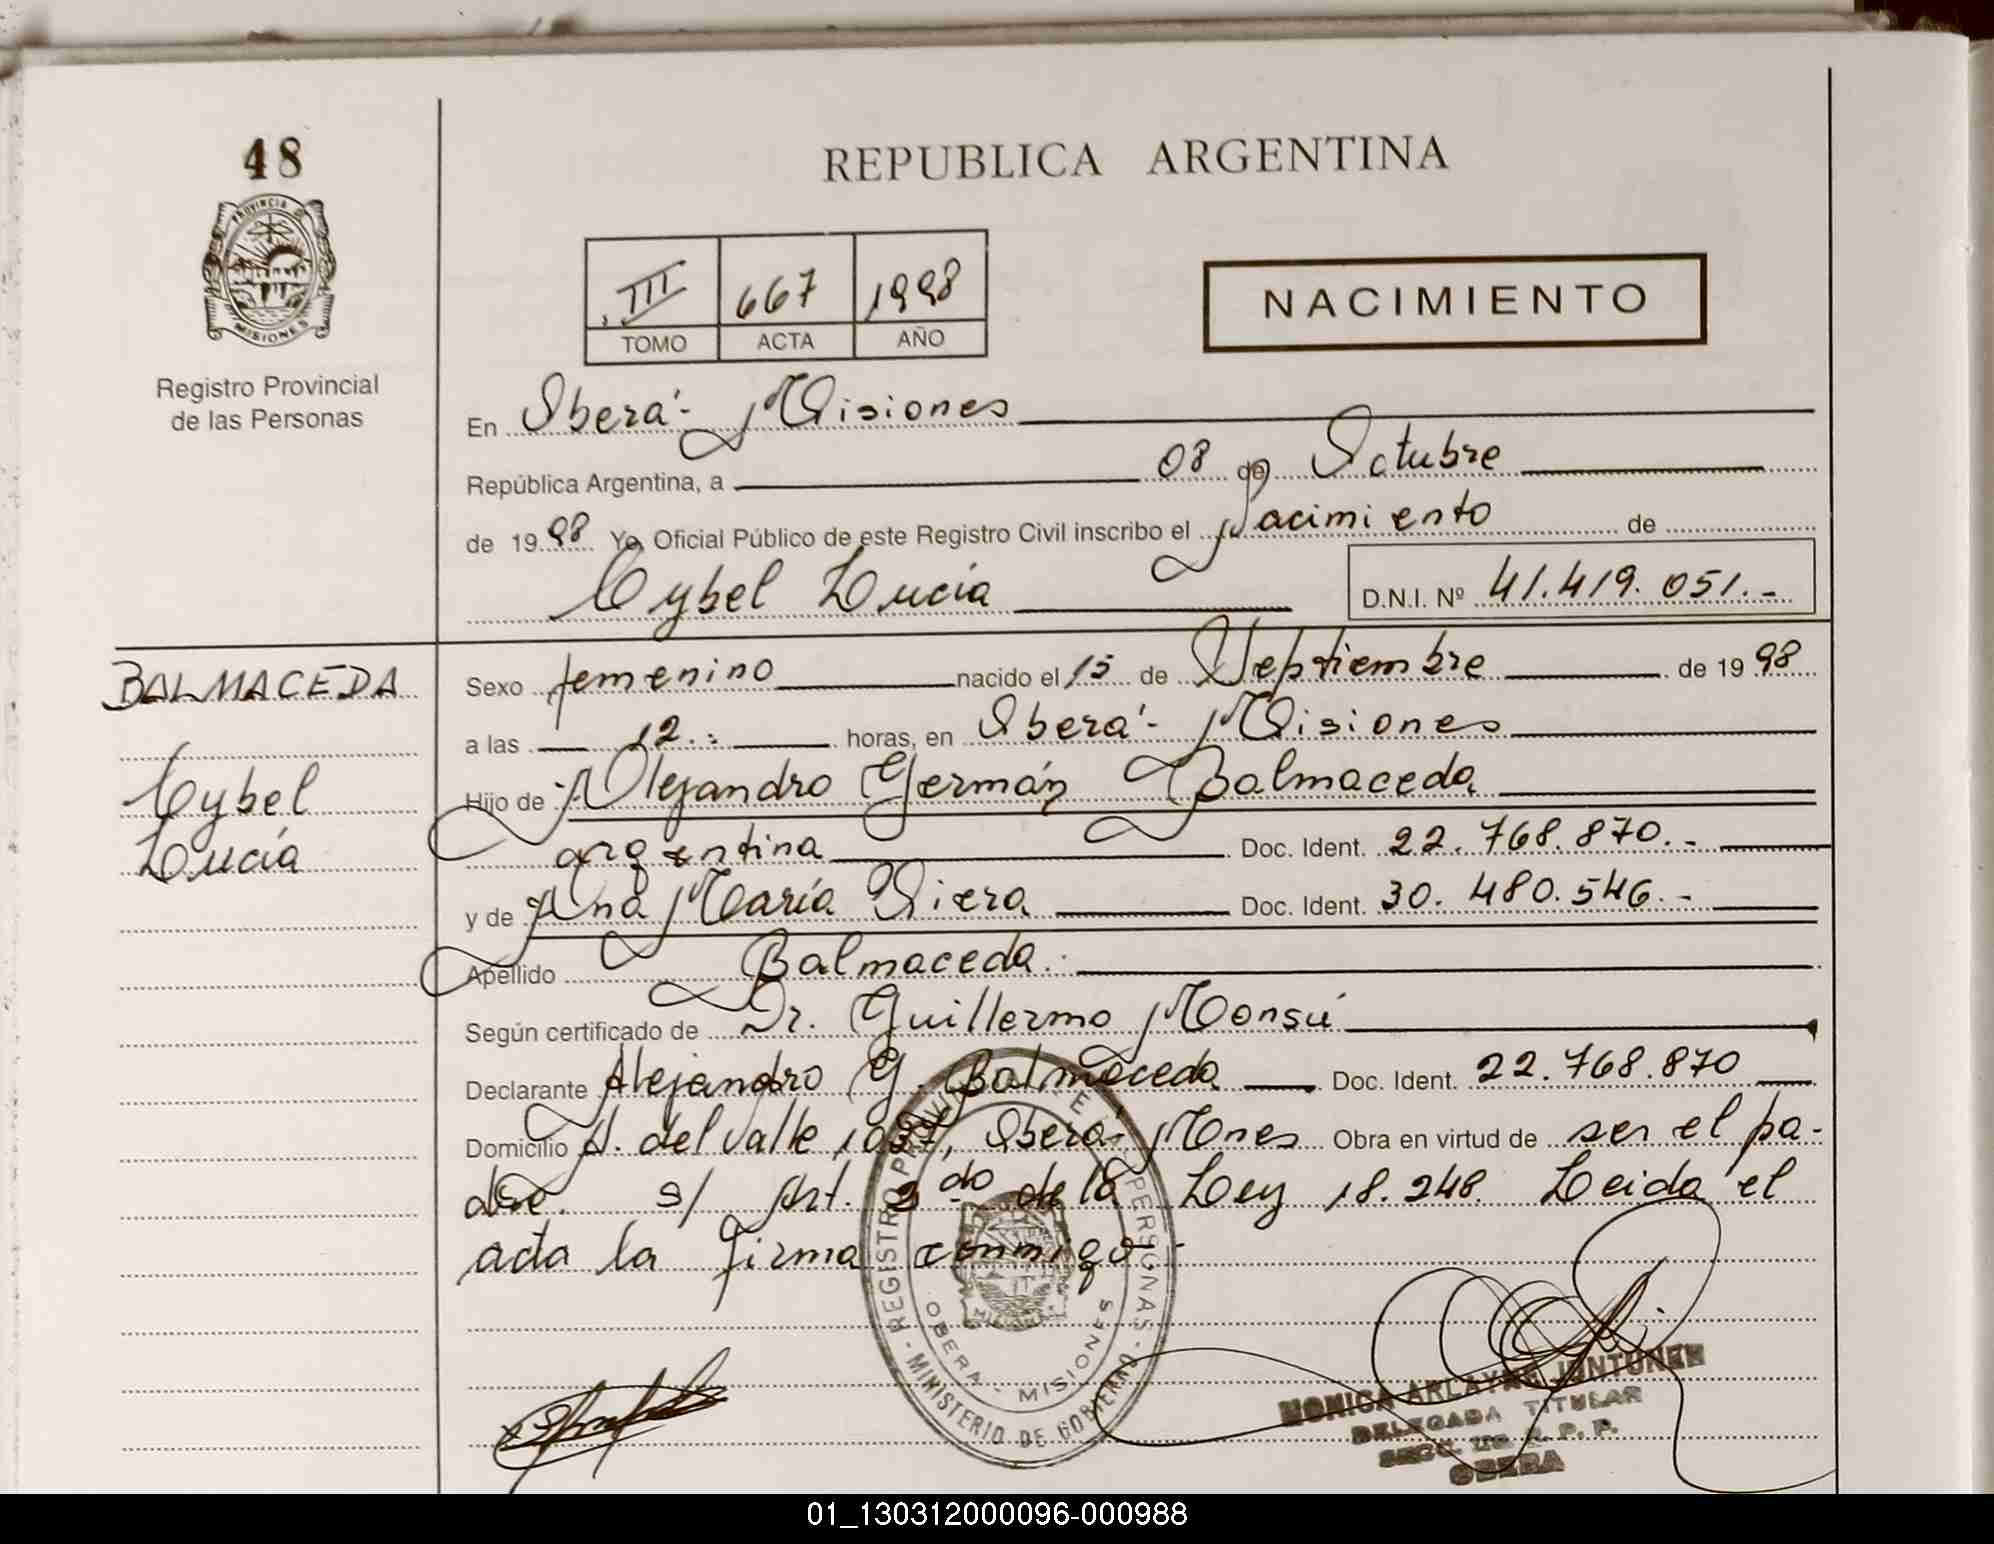 48
PROVINCIA DE
MISIONES
Registro Provincial
de las Personas
REPUBLICA ARGENTINA
III 667 1998
TOMO ACTA AÑO
NACIMIENTO
En Oberá - Misiones
República Argentina, a 08 de Octubre
de 1998 Yo, Oficial Público de este Registro Civil inscribo el Nacimiento de
Cybel Lucía D.N.I. Nº 41.419.051.-
BALMACEDA
Cybel
Lucía
Sexo femenino nacido el 15 de Septiembre de 1998
a las 12.: horas, en Oberá - Misiones
Hijo de Alejandro Germán Balmaceda
argentina Doc. Ident. 22.768.870.-
y de Ana María Viera Doc. Ident. 30.480.546.-
Apellido Balmaceda.
Según certificado de Dr. Guillermo Monsú
Declarante Alejandro G. Balmaceda Doc. Ident. 22.768.870
Domicilio A. del Valle, Oberá - Mones Obra en virtud de ser el pa-
dre. s/ Art. 2do de la Ley 18.248. Leida el
acta la firma conmigo.-
REGISTRO PROVINCIAL DE LAS PERSONAS
- MINISTERIO DE GOBIERNO -
OBERA - MISIONES
MONICA ARLAYNE JUNTUNEN
DELEGADA TITULAR
SECC. R. P. P.
OBERA
01_130312000096-000988